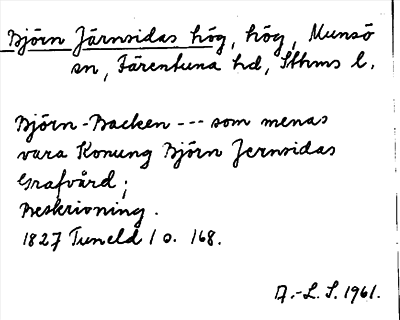 Björn Järnsidas hög, hög, Munsö
sn, Färentuna hd, Sthms l.
Björn-Backen --- som menas
vara Konung Björn Jernsidas
Grafvård;
Beskrivning.
1827 Tuneld I o. 168.
A.-L. S. 1961.